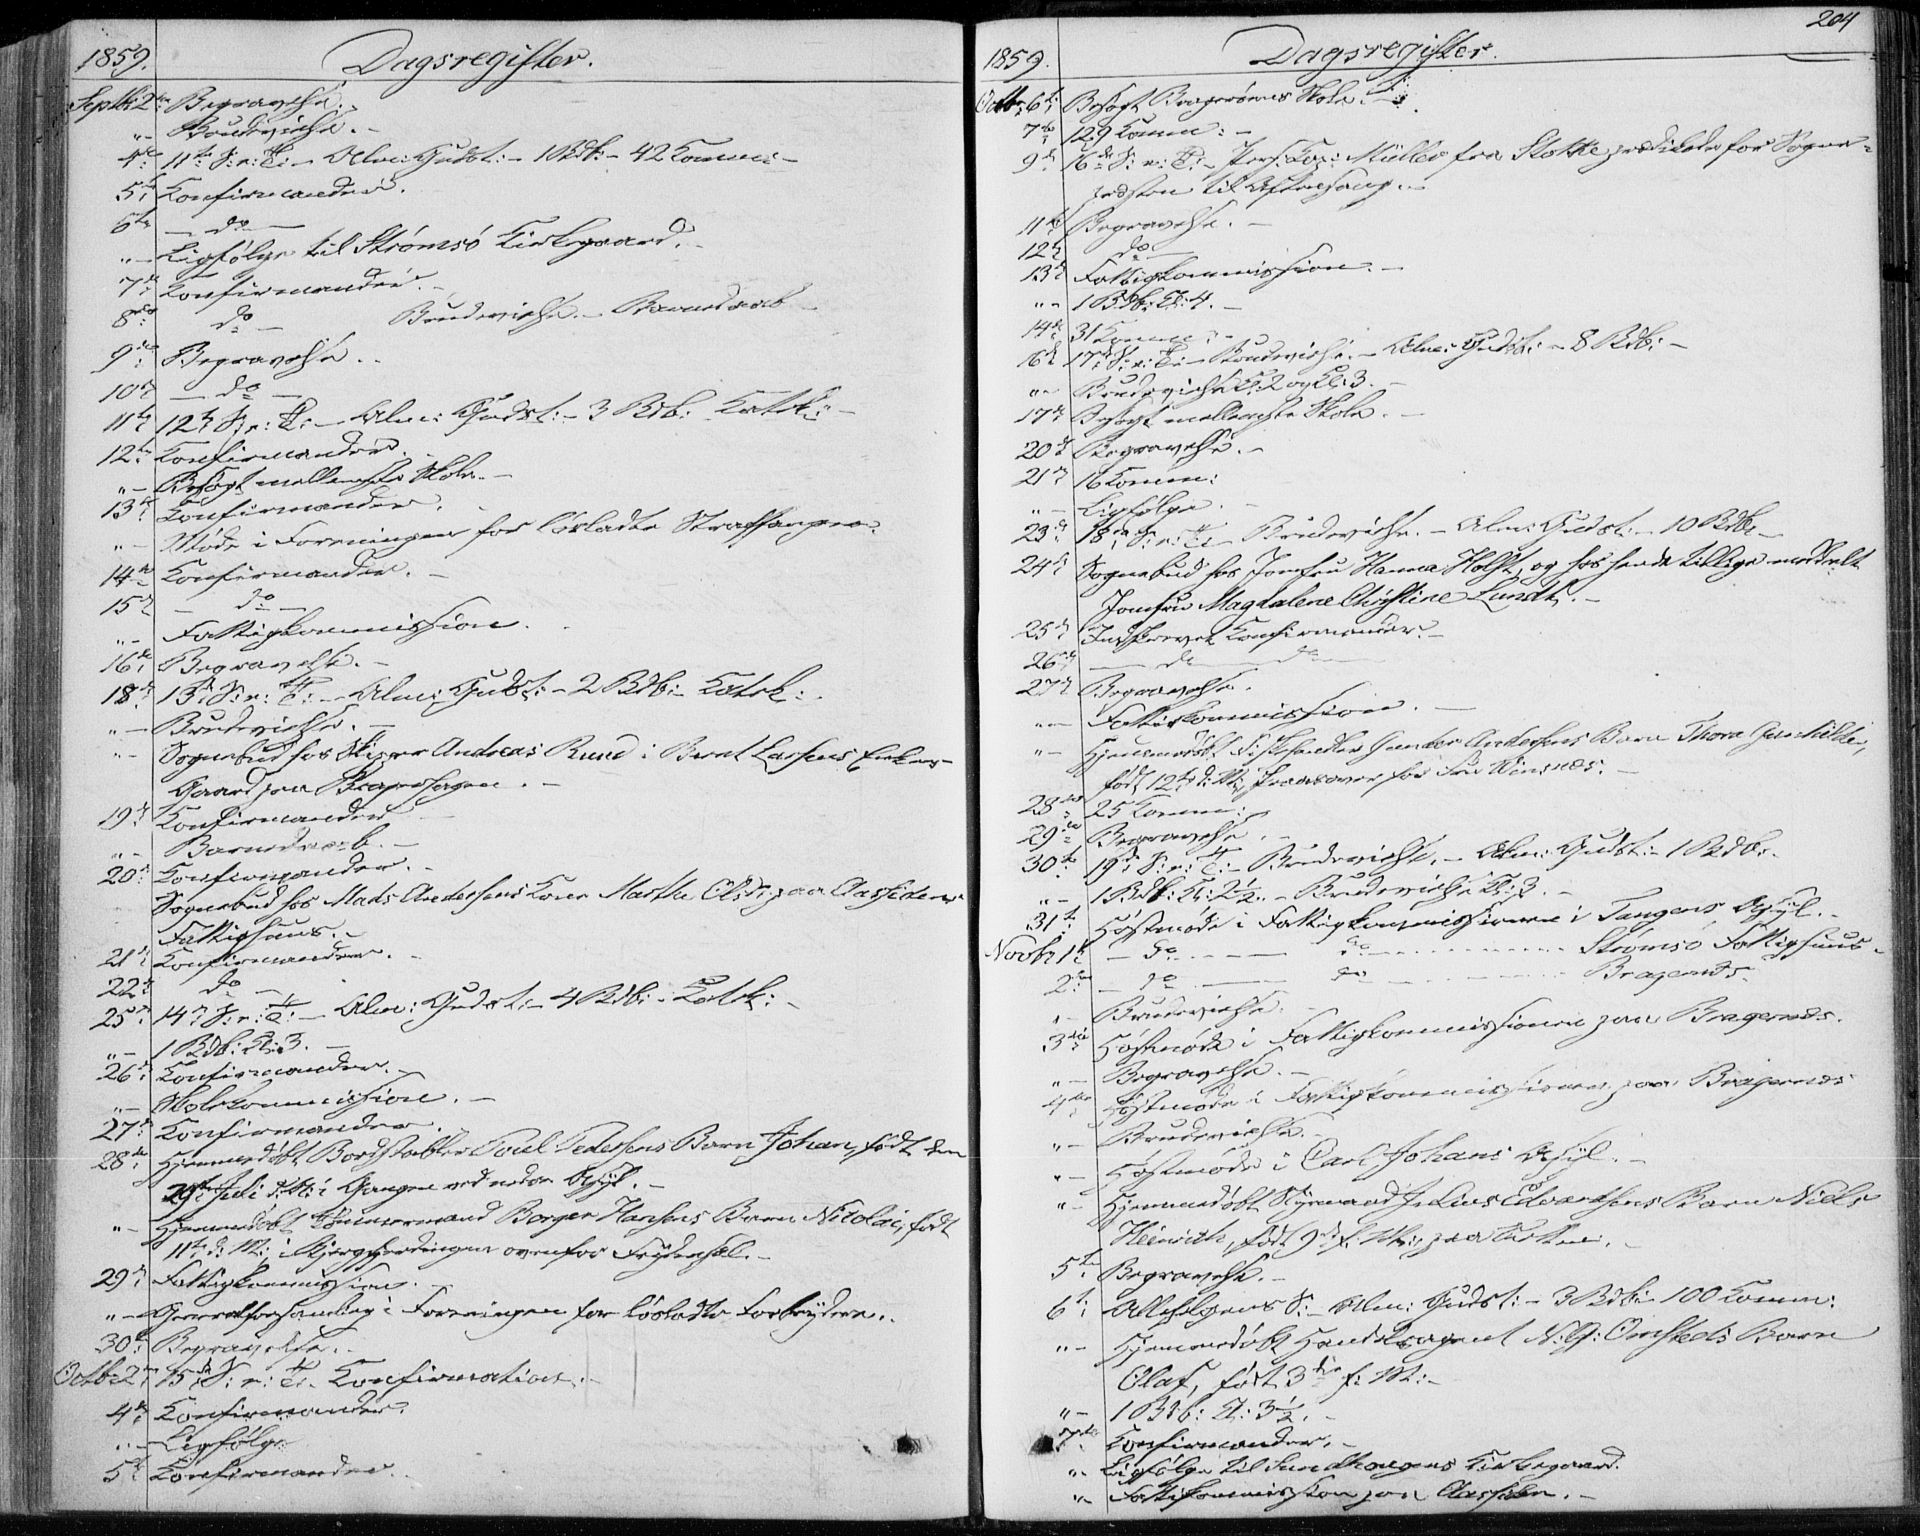 1859. Dagsregister.
Septbr 2den Begravelse.
„ — Brudevielse. —
4de 11te S: e: T: — Alm: Gudst: — 1 Bdb: — 42 Komm: —
5te Konfirmander.
6te — do —
„ — Ligfölge til Strömsö Kirkegaard. —
7de Konfirmander. —
8de do — Brudevielse. — Barnedaab —
9de Begravelse. —
10de — do —
11te 12te S: e: T: — Alm: Gudst: — 3 Bdb: Katek: —
12te Konfirmander.
„ — Besögt mellemste Skole. —
13de Konfirmander. —
„ — Möde i Foreningen for lösladte Straffanger.
14de Konfirmander. —
15de — do —
„ — Fattigkommission. —
16de Begravelse. —
18de 13de S: e: T: — Alm: Gudst: — 2 Bdb: — Katek: —
„ — Brudevielse. —
„ — Sognebud hos Skipper Andreas Rund i Bernt Larsens Enkes
Gaard paa Bragerhagen. —
19de Konfirmander —
„ — Barnedaab. —
20de Konfirmander. —
Sognebud hos Mads Andersens Kone Marthe Olsdr paa Aassidens
Fattighuus. —
21de Konfirmander. —
22de do —
25de 14de S: e: T: — Alm: Gudst: — 4 Bdb: — Katek: —
„ — 1 Bdb: Kl: 3. —
26de Konfirmander. —
„ — Skolekommission. —
27de Konfirmander. —
28de Hjemmedöbt Bordstabler Poul Pedersens Barn Johan, födt den
29de Juli d: A: i Gangen ved nedre Asyl. —
„ — Hjemmedöbt Tömmermand Borger Hansens Barn Nicolai, födt
11te d: M: i Bjergfjerdingen ovenfor Frydenhal. —
29de Fattigkommission. —
„ — Generalforsamling i Foreningen for lösladte Forbrydere. —
30te Begravelse. —
Octbr 2den 15de S: e: T: — Konfirmation. —
4de Konfirmander.
„ — Ligfölge
5te Konfirmander. —
204
1859. Dagsregister.
Octbr 6te Besögt Bragernæs Skole. —
7de 129 Komm: —
9de 16de S: e: T: — Pers: Kap: Müller fra Stokke prædikede for Sogne-
presten til Aftensang. —
11te Begravelse. —
12te do —
13de Fattigkommission. —
„ — 1 Bdb: Kl: 4. —
14de 31 Komm: —
16de 17de S: e: T: — Brudevielse. — Alm: Gudst: — 8 Bdb: —
„ — Brudevielse Kl: 2 og Kl: 3. —
17de Besögt mellemste Skole. —
20de Begravelse. —
21de 16 Komm:
„ — Ligfölge. —
23de 18de S: e: T: — Brudevielse. — Alm: Gudst: — 10 Bdb: —
24de Sognebud hos Jomfru Hanna Holst, og hos hende tillige meddelt
Jomfru Magdalene Christine Lundt. —
25de Indskrevet Konfirmander. —
26de — do — do —
27de Begravelse.
„ — Fattigkommission. —
„ — Hjemmedöbt Fiskehandler Gunder Andersens Barn Thora Gunhilde,
födt 12te d: M: ligeover for Fru Winsnes. —
28de 25 Komm: —
29de Begravelse. —
30te 19de S: e: T: — Brudevielse. — Alm: Gudst: — 1 Bdb: —
„ — 1 Bdb: Kl: 2½. — Brudevielse Kl: 3. —
31te Höstmöde i Fattigkommissionen i Tangens Asyl. —
Novbr 1te — do — do — Strömsö Fattighuus —
2den — do — do — Bragernæs.
„ — Brudevielse. —
3die Höstmöde i Fattigkommissionen paa Bragernæs.
„ — Begravelse. —
4de Höstmöde i Fattigkommissionen paa Bragernæs
„ — Brudevielse. —
„ — Höstmöde i Carl Johans Asyl. —
„ — Hjemmedöbt Styrmand Julius Edvardsens Barn Niels
Heinrich, födt 9de f: M: paa Tolden. —
5te Begravelse. —
6te Allehelgens S: — Alm: Gudst: — 3 Bdb: — 100 Komm:
„ — Hjemmedöbt Handelsagent N: G: Omsteds Barn
Olaf, födt 3die f: M: —
„ — 1 Bdb: Kl: 3½. —
7de Konfirmander. —
„ — Ligfölge til Sundhaugens Kirkegaard.
„ — Fattigkommission paa Aassiden. —